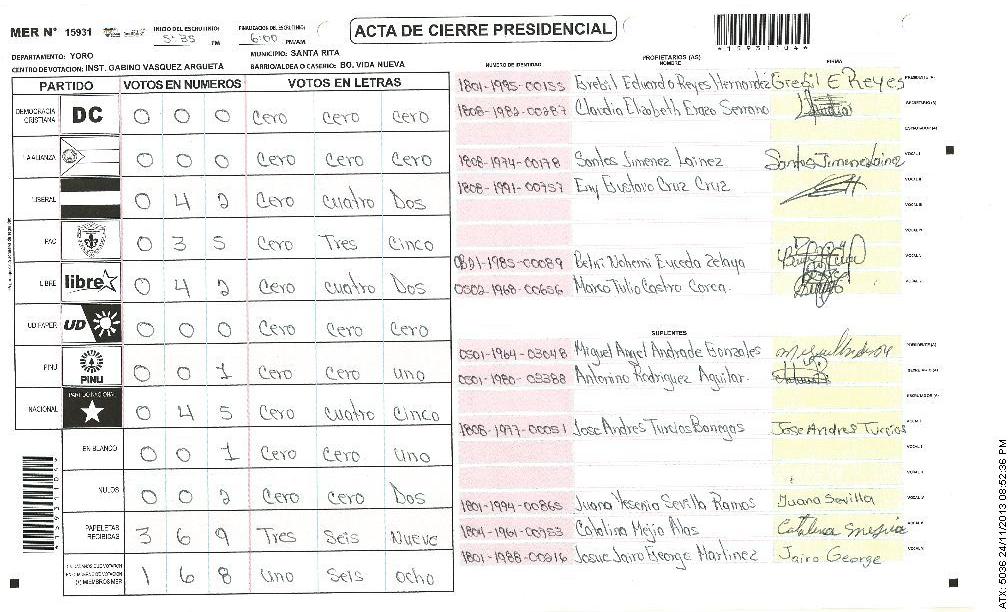 MER N° 15931
INICIO DEL ESCRUTINIO: 5:35 PM
FINALIZACION DEL ESCRUTINIO: 6:00 PM/AM
ACTA DE CIERRE PRESIDENCIAL
DEPARTAMENTO: YORO
MUNICIPIO: SANTA RITA
CENTRO DE VOTACION: INST. GABINO VASQUEZ ARGUETA
BARRIO/ALDEA O CASERIO: BO. VIDA NUEVA
PARTIDO VOTOS EN NUMEROS VOTOS EN LETRAS
DEMOCRACIA CRISTIANA DC 0 0 0 Cero Cero Cero
LA ALIANZA 0 0 0 Cero Cero Cero
LIBERAL 0 4 2 Cero cuatro Dos
PAC 0 3 5 Cero Tres Cinco
LIBRE libre 0 4 2 Cero cuatro Dos
UD/FAPER UD 0 0 0 Cero Cero Cero
PINU PINU 0 0 1 Cero Cero uno
NACIONAL PARTIDO NACIONAL 0 4 5 Cero Cuatro Cinco
EN BLANCO 0 0 1 Cero Cero uno
NULOS 0 0 2 Cero Cero Dos
PAPELETAS RECIBIDAS 3 6 9 Tres Seis Nueve
1 6 8 uno Seis ocho
NUMERO DE IDENTIDAD
PROPIETARIOS (AS)
NOMBRE
FIRMA
1801-1995-00155 Eduardo Reyes Hernandez E Reyes PRESIDENTE (A)
1808-1982-00287 Claudia Elizabeth Erazo Serrano SECRETARIO (A)
ESCRUTADOR (A)
1808-1974-00178 Santos Jimenez Lainez Santos Jimenez Lainez VOCAL I
1808-1991-00757 Gustavo Cruz Cruz VOCAL II
VOCAL III
VOCAL IV
0821-1985-00089 Nohemi Euceda Zelaya VOCAL V
0502-1968-00656 Marco Tulio Castro
SUPLENTES
0501-1964-03048 Miguel Angel Andrade Gonzales PRESIDENTE (A)
0501-1980-03388 Antonino Rodriguez Aguilar. SECRETARIO (A)
ESCRUTADOR (A)
1808-1977-00051 Jose Andres Turcios Banegas Jose Andres Turcios VOCAL I
1801-1994-00865 Juana Yesenia Sevilla Ramos Juana Sevilla
1804-1961-00753 Catalina Mejia Catalina Mejia
1801-1988-00516 Josue Jairo George Martinez Jairo George
ATX: 5036 24/11/2013 08:52:36 PM